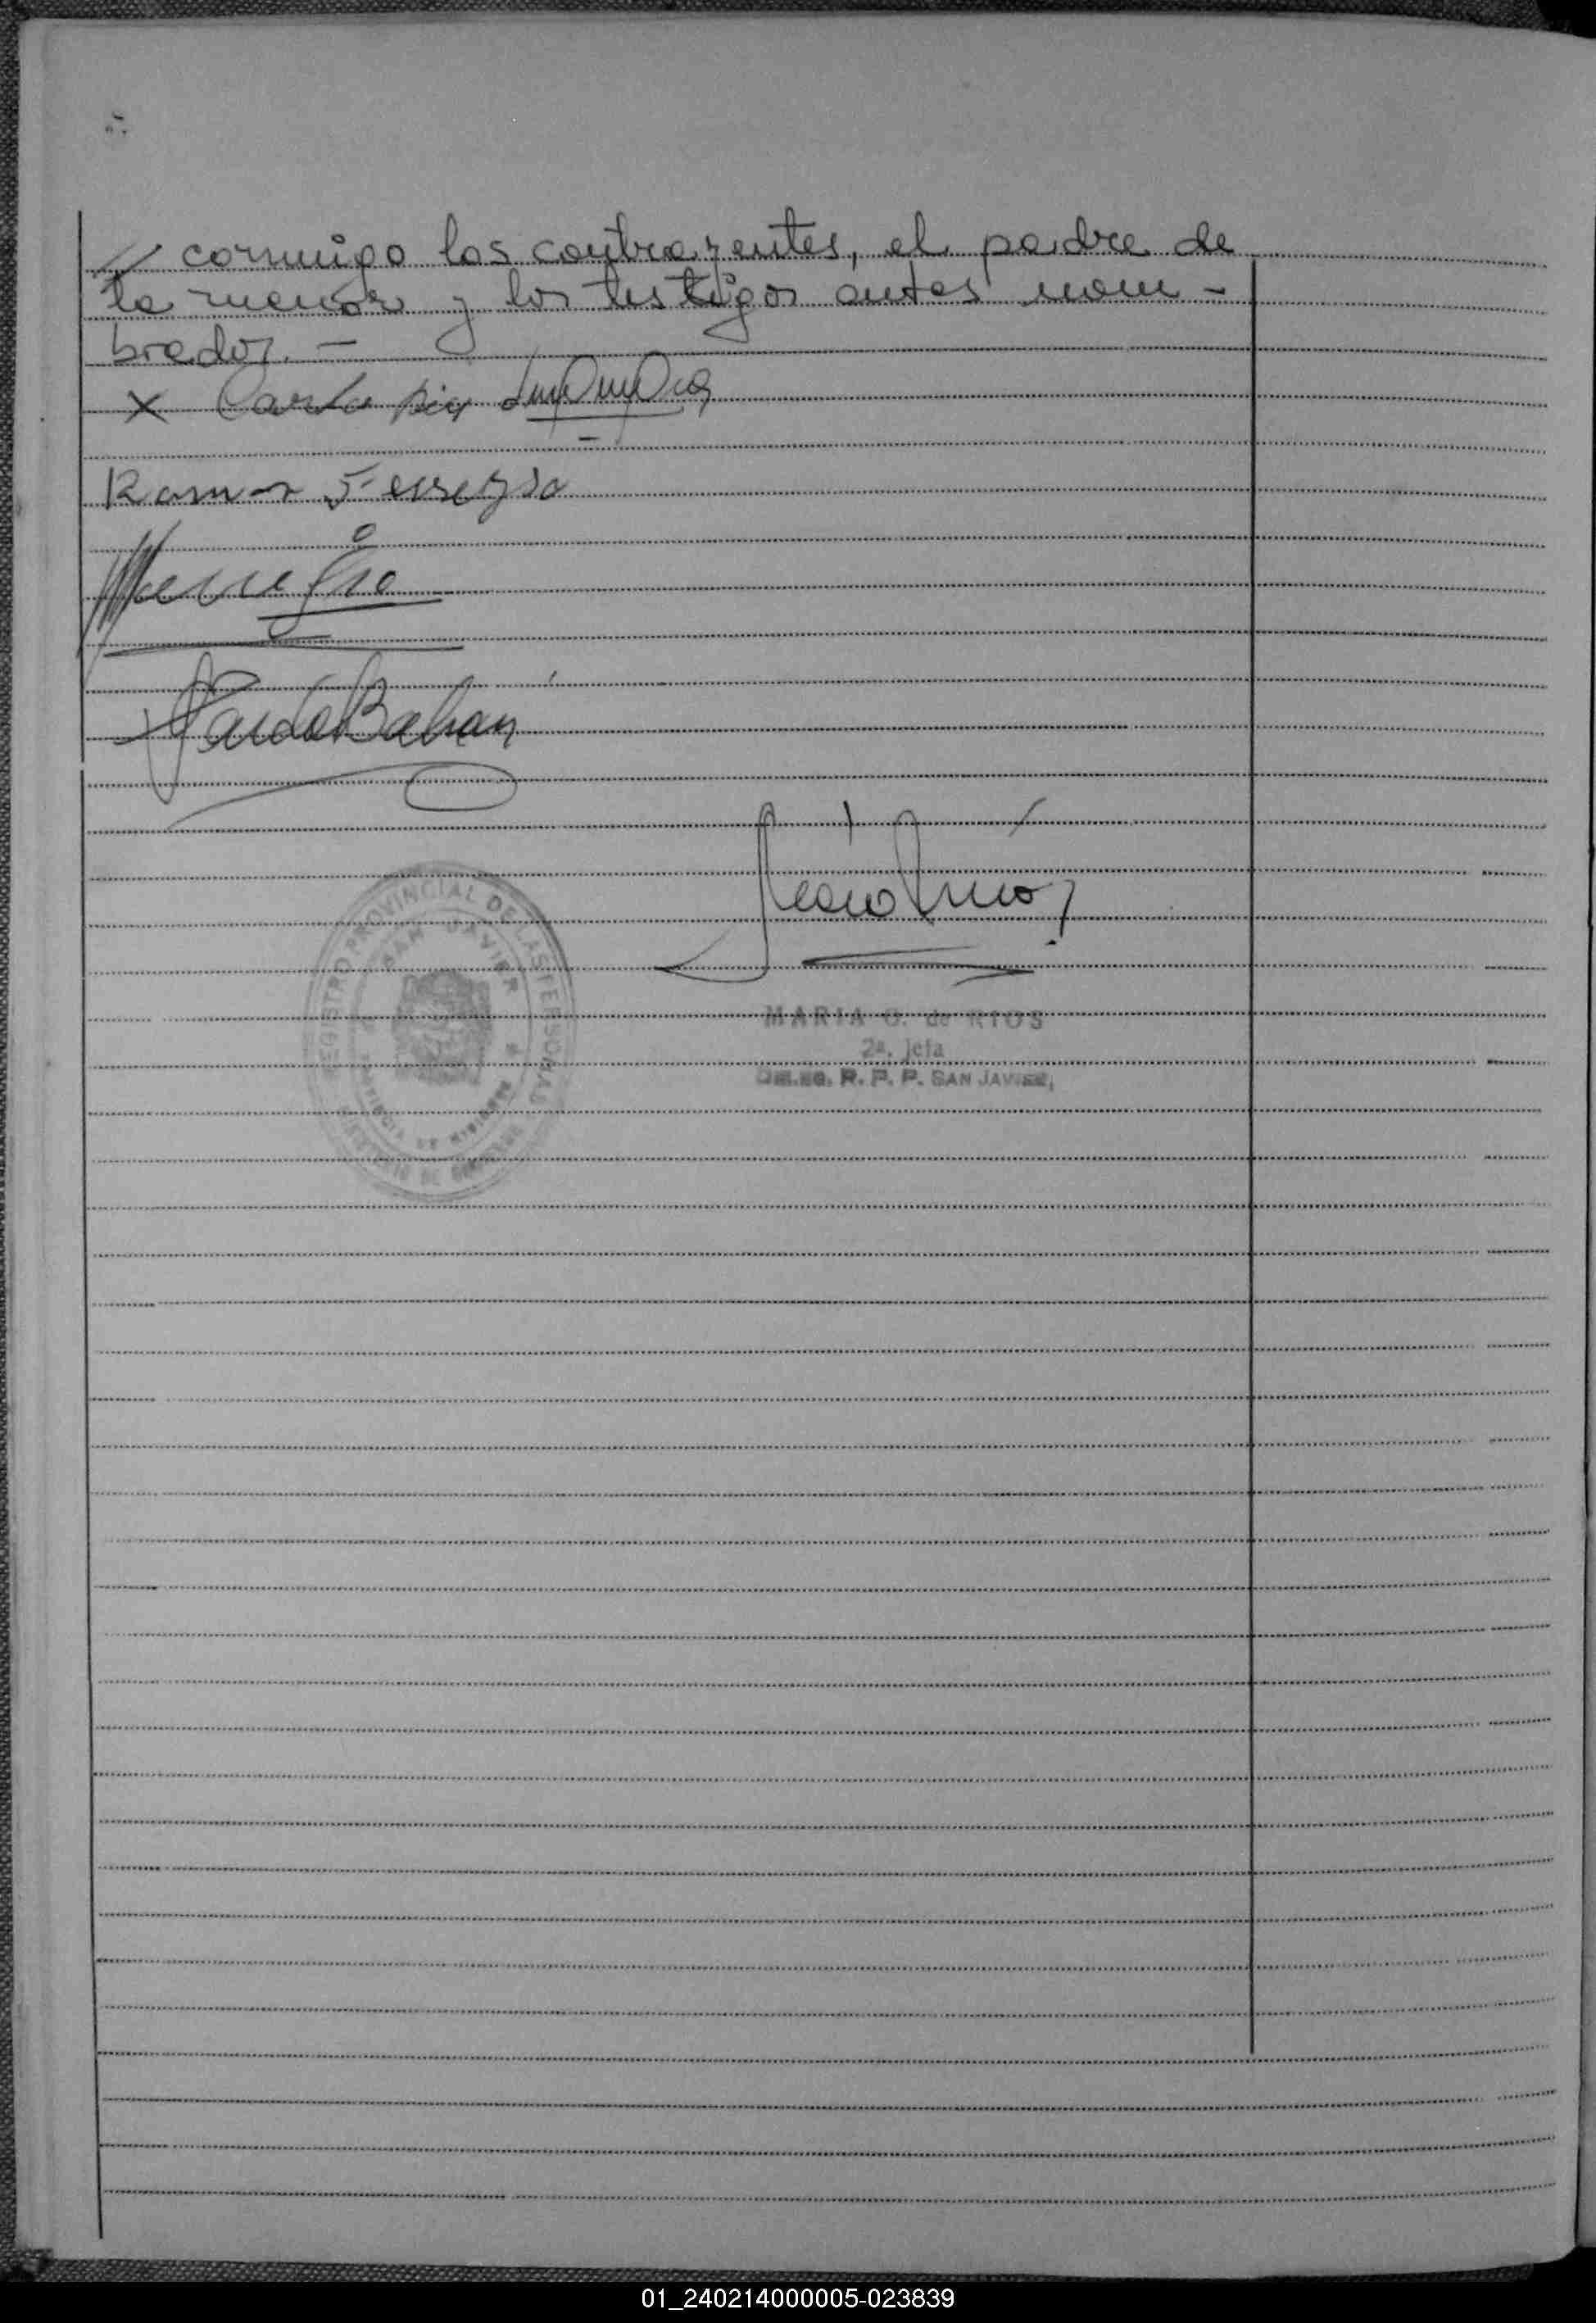 // conmigo los contrayentes, el padre de
la menor y los testigos antes nom-
brados.-
x Carlos
Ramon Ferreyra
REGISTRO PROVINCIAL DE LAS PERSONAS
SAN JAVIER
PROVINCIA DE MISIONES
MINISTERIO DE GOBIERNO
MARIA G. de RIOS
2a. Jefa
DELEG. R. P. P. SAN JAVIER,
01_240214000005-023839